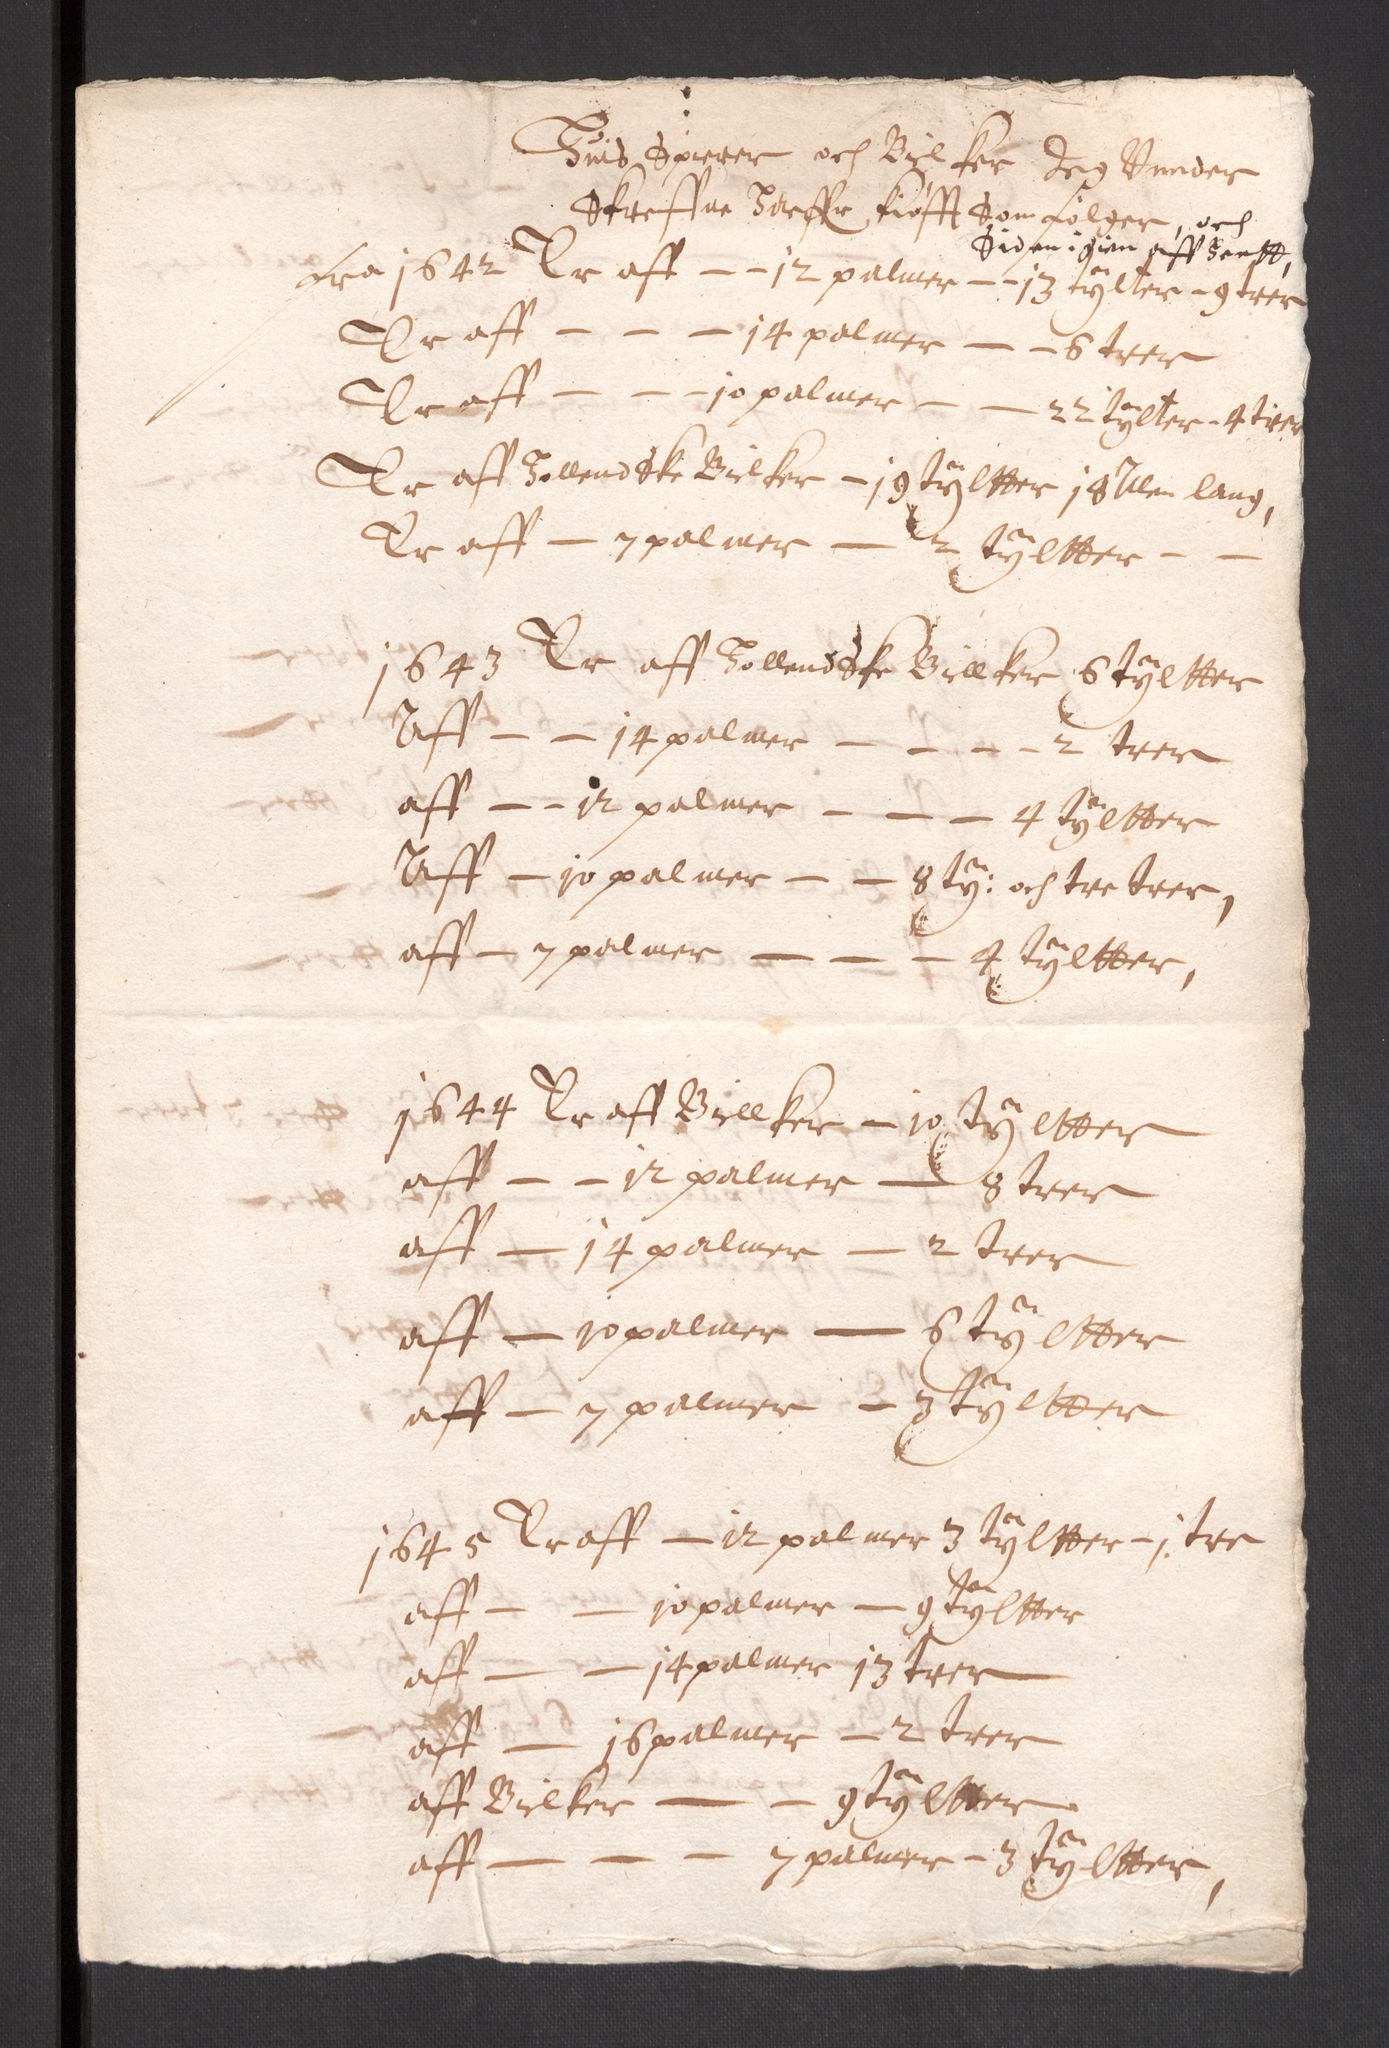 Huis Spierer och Bielker Jeg Vnnder
Skreffne Haffr kiøfft Som følger, och
Siden igien aff hentt,
fra 1642 Er aff - - 12 palmer - - 13 tÿlter - 9 trer
Er aff - - - 14 palmer - - 6 trer
Er aff - - - 10 palmer - - 22 tÿlter - 4 trer
Er aff Hollendske Bielker - 19 tÿltter 18 Allen lang,
Er aff - 7 palmer - 2 tÿltter - -
1643 Er aff Hollendske Biellker 6 tÿltter
Aff - - 14 palmer - - - - 2 trer
aff - - 12 palmer - - - 4 tÿltter
Aff - 10 palmer - - 8 tÿ: och tre trer,
aff - 7 palmer - - - 4 tÿltter,
1644 Er aff Biellker - 10 tÿltter
aff - - 12 palmer - 8 trer
aff - 14 palmer - 2 trer
aff - 10 palmer - 6 tÿltter
aff - 7 palmer - 3 tÿltter
1645 Er aff - 12 palmer 3 tÿltter - 1 tre
aff - - 10 palmer - 9 tÿltter
aff - - 14 palmer 13 trer
aff - 16 palmer - 2 trer
aff Bielker - - 9 tÿltter
aff - - - 7 palmer - 3 tÿltter,